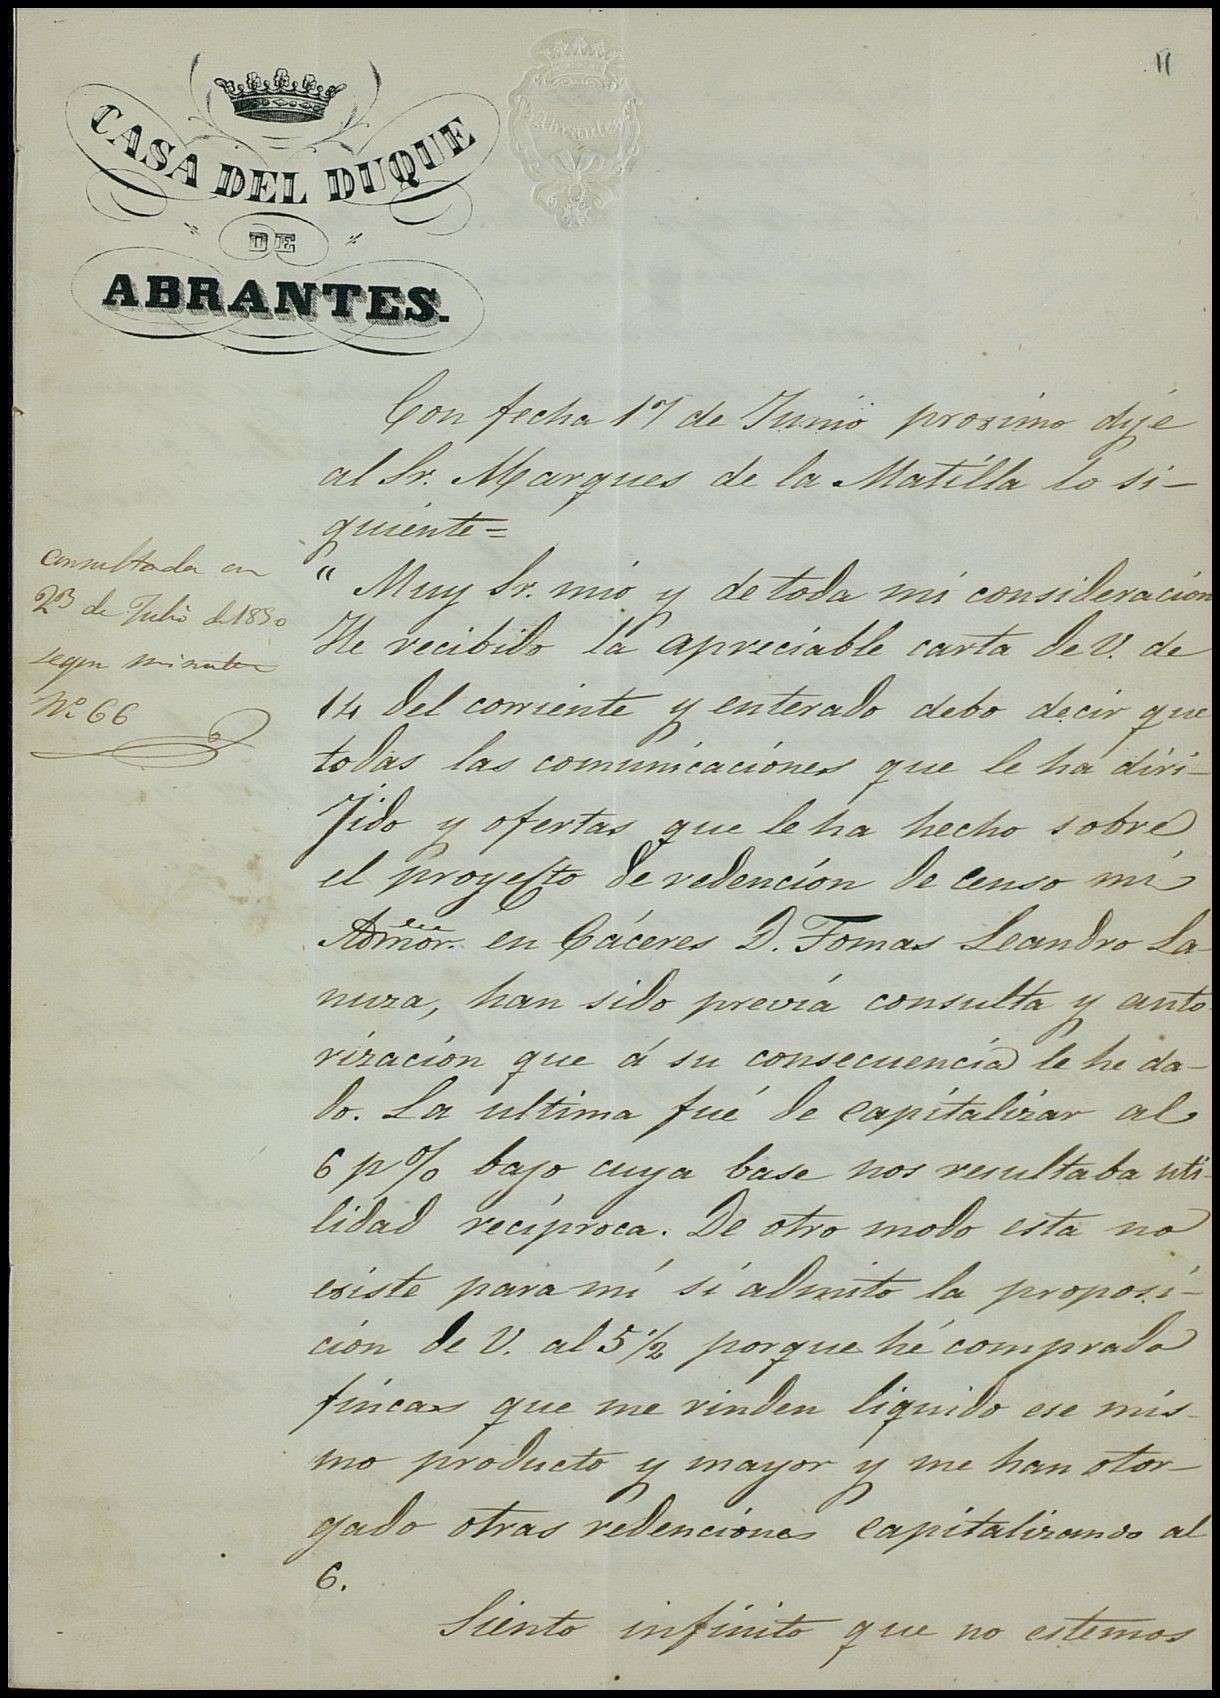 11
CASA DEL DUQUE
DE
ABRANTES.
Abrantes
Con fecha 17 de Junio proximo dije
al Sr. Marques de la Matilla lo si-
guiente=
consultada en
23 de Julio de 1880
segun minuta
Nº 66
" Muy Sr. mio y de toda mi consideración
He recibido la apreciable carta de V. de
14 del corriente y enterado debo decir que
todas las comunicaciones que le ha diri-
jido y ofertas que le ha hecho sobre
el proyecto de redención de censo mi
Admor. en Cáceres D. Tomas Leandro La
nuza, han sido previa consulta y auto
rización que á su consecuencia le he da-
do. La ultima fué de capitalizar al
6 p% bajo cuya base nos resultaba uti-
lidad recíproca. De otro modo esta no
existe para mí si admito la proposi-
ción de V. al 5 1/2 porque hé comprado
fincas que me rinden liquido ese mis-
mo producto y mayor y me han otor-
gado otras redenciones capitalizando al
6.
Siento infinito que no estemos